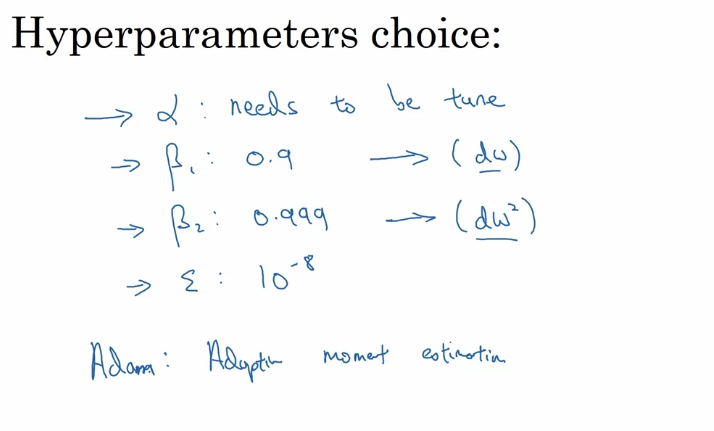 Hyperparameters choice:
→ α : needs to be tune
→ β₁ : 0.9 → (dw)
→ β₂ : 0.999 → (dw²)
→ ε : 10⁻⁸
Adam : Adaptive moment estimation